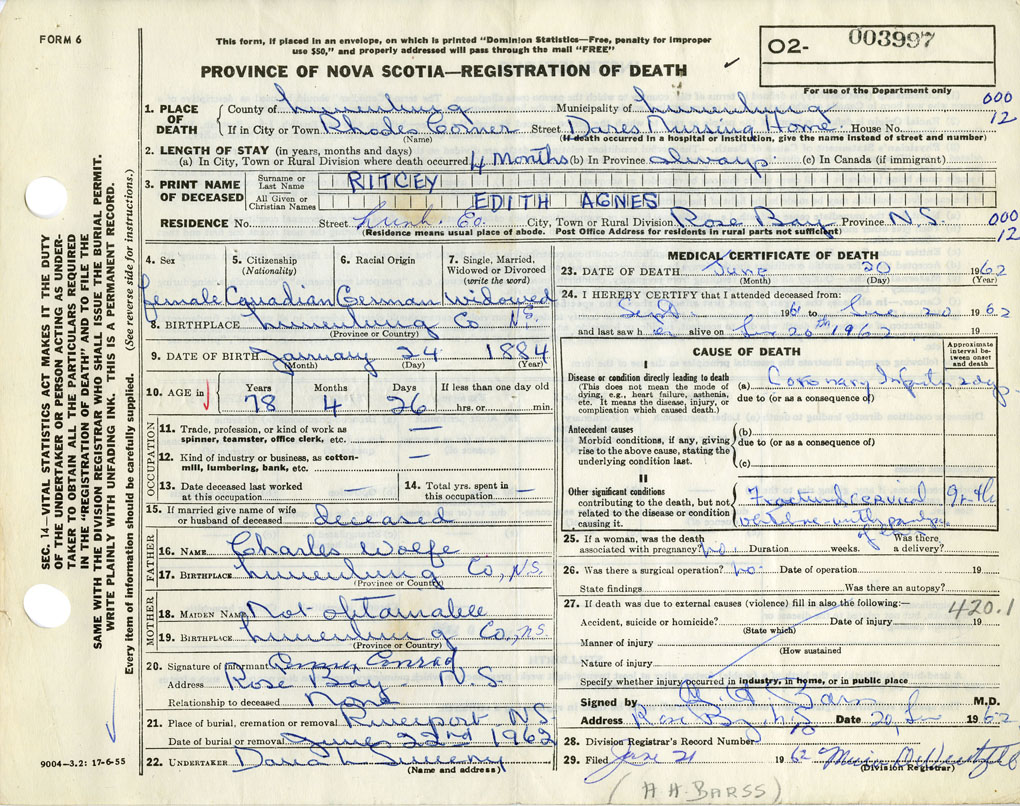 FORM 6
This form, if placed in an envelope, on which is printed "Dominion Statistics—Free, penalty for improper
use $50," and properly addressed will pass through the mail "FREE"
PROVINCE OF NOVA SCOTIA—REGISTRATION OF DEATH
O2- 003997
For use of the Department only
SEC. 14—VITAL STATISTICS ACT MAKES IT THE DUTY
OF THE UNDERTAKER OR PERSON ACTING AS UNDER-
TAKER TO OBTAIN ALL THE PARTICULARS REQUIRED
IN THE "REGISTRATION OF DEATH" AND TO FILE THE
SAME WITH THE DIVISION REGISTRAR WHO SHALL ISSUE THE BURIAL PERMIT.
WRITE PLAINLY WITH UNFADING INK. THIS IS A PERMANENT RECORD.
Every item of information should be carefully supplied. (See reverse side for instructions.)
1. PLACE OF DEATH
County of Lunenburg Municipality of Lunenburg 000
If in City or Town Rhodes Corner Street Dares Nursing Home House No. 12
(Name) (If death occurred in a hospital or institution, give the name instead of street and number)
2. LENGTH OF STAY (in years, months and days)
(a) In City, Town or Rural Division where death occurred 4 Months (b) In Province always (c) In Canada (if immigrant)
3. PRINT NAME OF DECEASED
Surname or Last Name RITCEY
All Given or Christian Names EDITH AGNES
RESIDENCE No. Street Lunh. Co. City, Town or Rural Division Rose Bay Province N.S. 000
(Residence means usual place of abode. Post Office Address for residents in rural parts not sufficient) 12
4. Sex 5. Citizenship (Nationality) 6. Racial Origin 7. Single, Married, Widowed or Divorced (write the word)
female Canadian German widowed
8. BIRTHPLACE Lunenburg Co N.S.
(Province or Country)
9. DATE OF BIRTH January 24 1884
(Month) (Day) (Year)
10. AGE in Years Months Days If less than one day old
78 4 26 hrs. or min.
OCCUPATION
11. Trade, profession, or kind of work as
spinner, teamster, office clerk, etc. —
12. Kind of industry or business, as cotton-
mill, lumbering, bank, etc. —
13. Date deceased last worked at this occupation — 14. Total yrs. spent in this occupation —
15. If married give name of wife or husband of deceased deceased
FATHER
16. NAME Charles Wolfe
17. BIRTHPLACE Lunenburg Co, N.S.
(Province or Country)
MOTHER
18. MAIDEN NAME Not obtainable
19. BIRTHPLACE Lunenburg Co., N.S.
(Province or Country)
20. Signature of informant Conrad
Address Rose Bay N.S.
Relationship to deceased None
21. Place of burial, cremation or removal Riverport N.S.
Date of burial or removal June 22nd 1962
22. UNDERTAKER
(Name and address)
9004—3.2: 17-6-55
MEDICAL CERTIFICATE OF DEATH
23. DATE OF DEATH June 20 1962
(Month) (Day) (Year)
24. I HEREBY CERTIFY that I attended deceased from:
Sept. 1961 to June 20 1962
and last saw h er alive on Jun 20th 1962
CAUSE OF DEATH
Approximate interval between onset and death
I
Disease or condition directly leading to death (a) Coronary 2 days
(This does not mean the mode of dying, e.g., heart failure, asthenia, etc. It means the disease, injury, or complication which caused death.) due to (or as a consequence of)
Antecedent causes (b)
Morbid conditions, if any, giving rise to the above cause, stating the underlying condition last. due to (or as a consequence of)
(c)
II
Other significant conditions
contributing to the death, but not related to the disease or condition causing it. Fractured cervical
25. If a woman, was the death associated with pregnancy? no. Duration weeks. Was there a delivery?
26. Was there a surgical operation? no. Date of operation 19
State findings Was there an autopsy?
27. If death was due to external causes (violence) fill in also the following:— 420.1
Accident, suicide or homicide? Date of injury 19
(State which)
Manner of injury
(How sustained
Nature of injury
Specify whether injury occurred in industry, in home, or in public place
Signed by M.D.
Address Rose Bay, N.S. Date 20, Jun 1962
28. Division Registrar's Record Number
29. Filed June 21 1962
(Division Registrar)
(A A. BARSS)